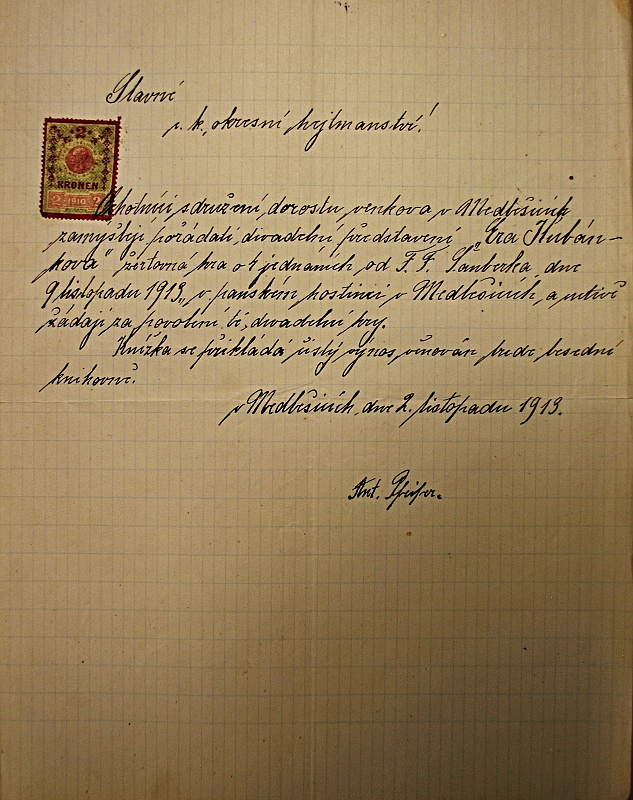 Slavné
c. k. okresní hejtmanství!
2
KRONEN
2 1910 2
sdružení dorostu venkova v Medlešicích
zamýšlejí pořádati divadelní představení „Éra Kubán-
kova" žertovná hra o 4 jednáních od F. F. Šamberka, dne
9 listopadu 1913, v panském hostinci v Medlešicích, a uctivě
žádají za povolení té divadelní hry.
Knížka se přikládá čistý výnos věnován bude besední
knihovně.
v Medlešicích, dne 2. listopadu 1913.
Ant. Pfeifer.